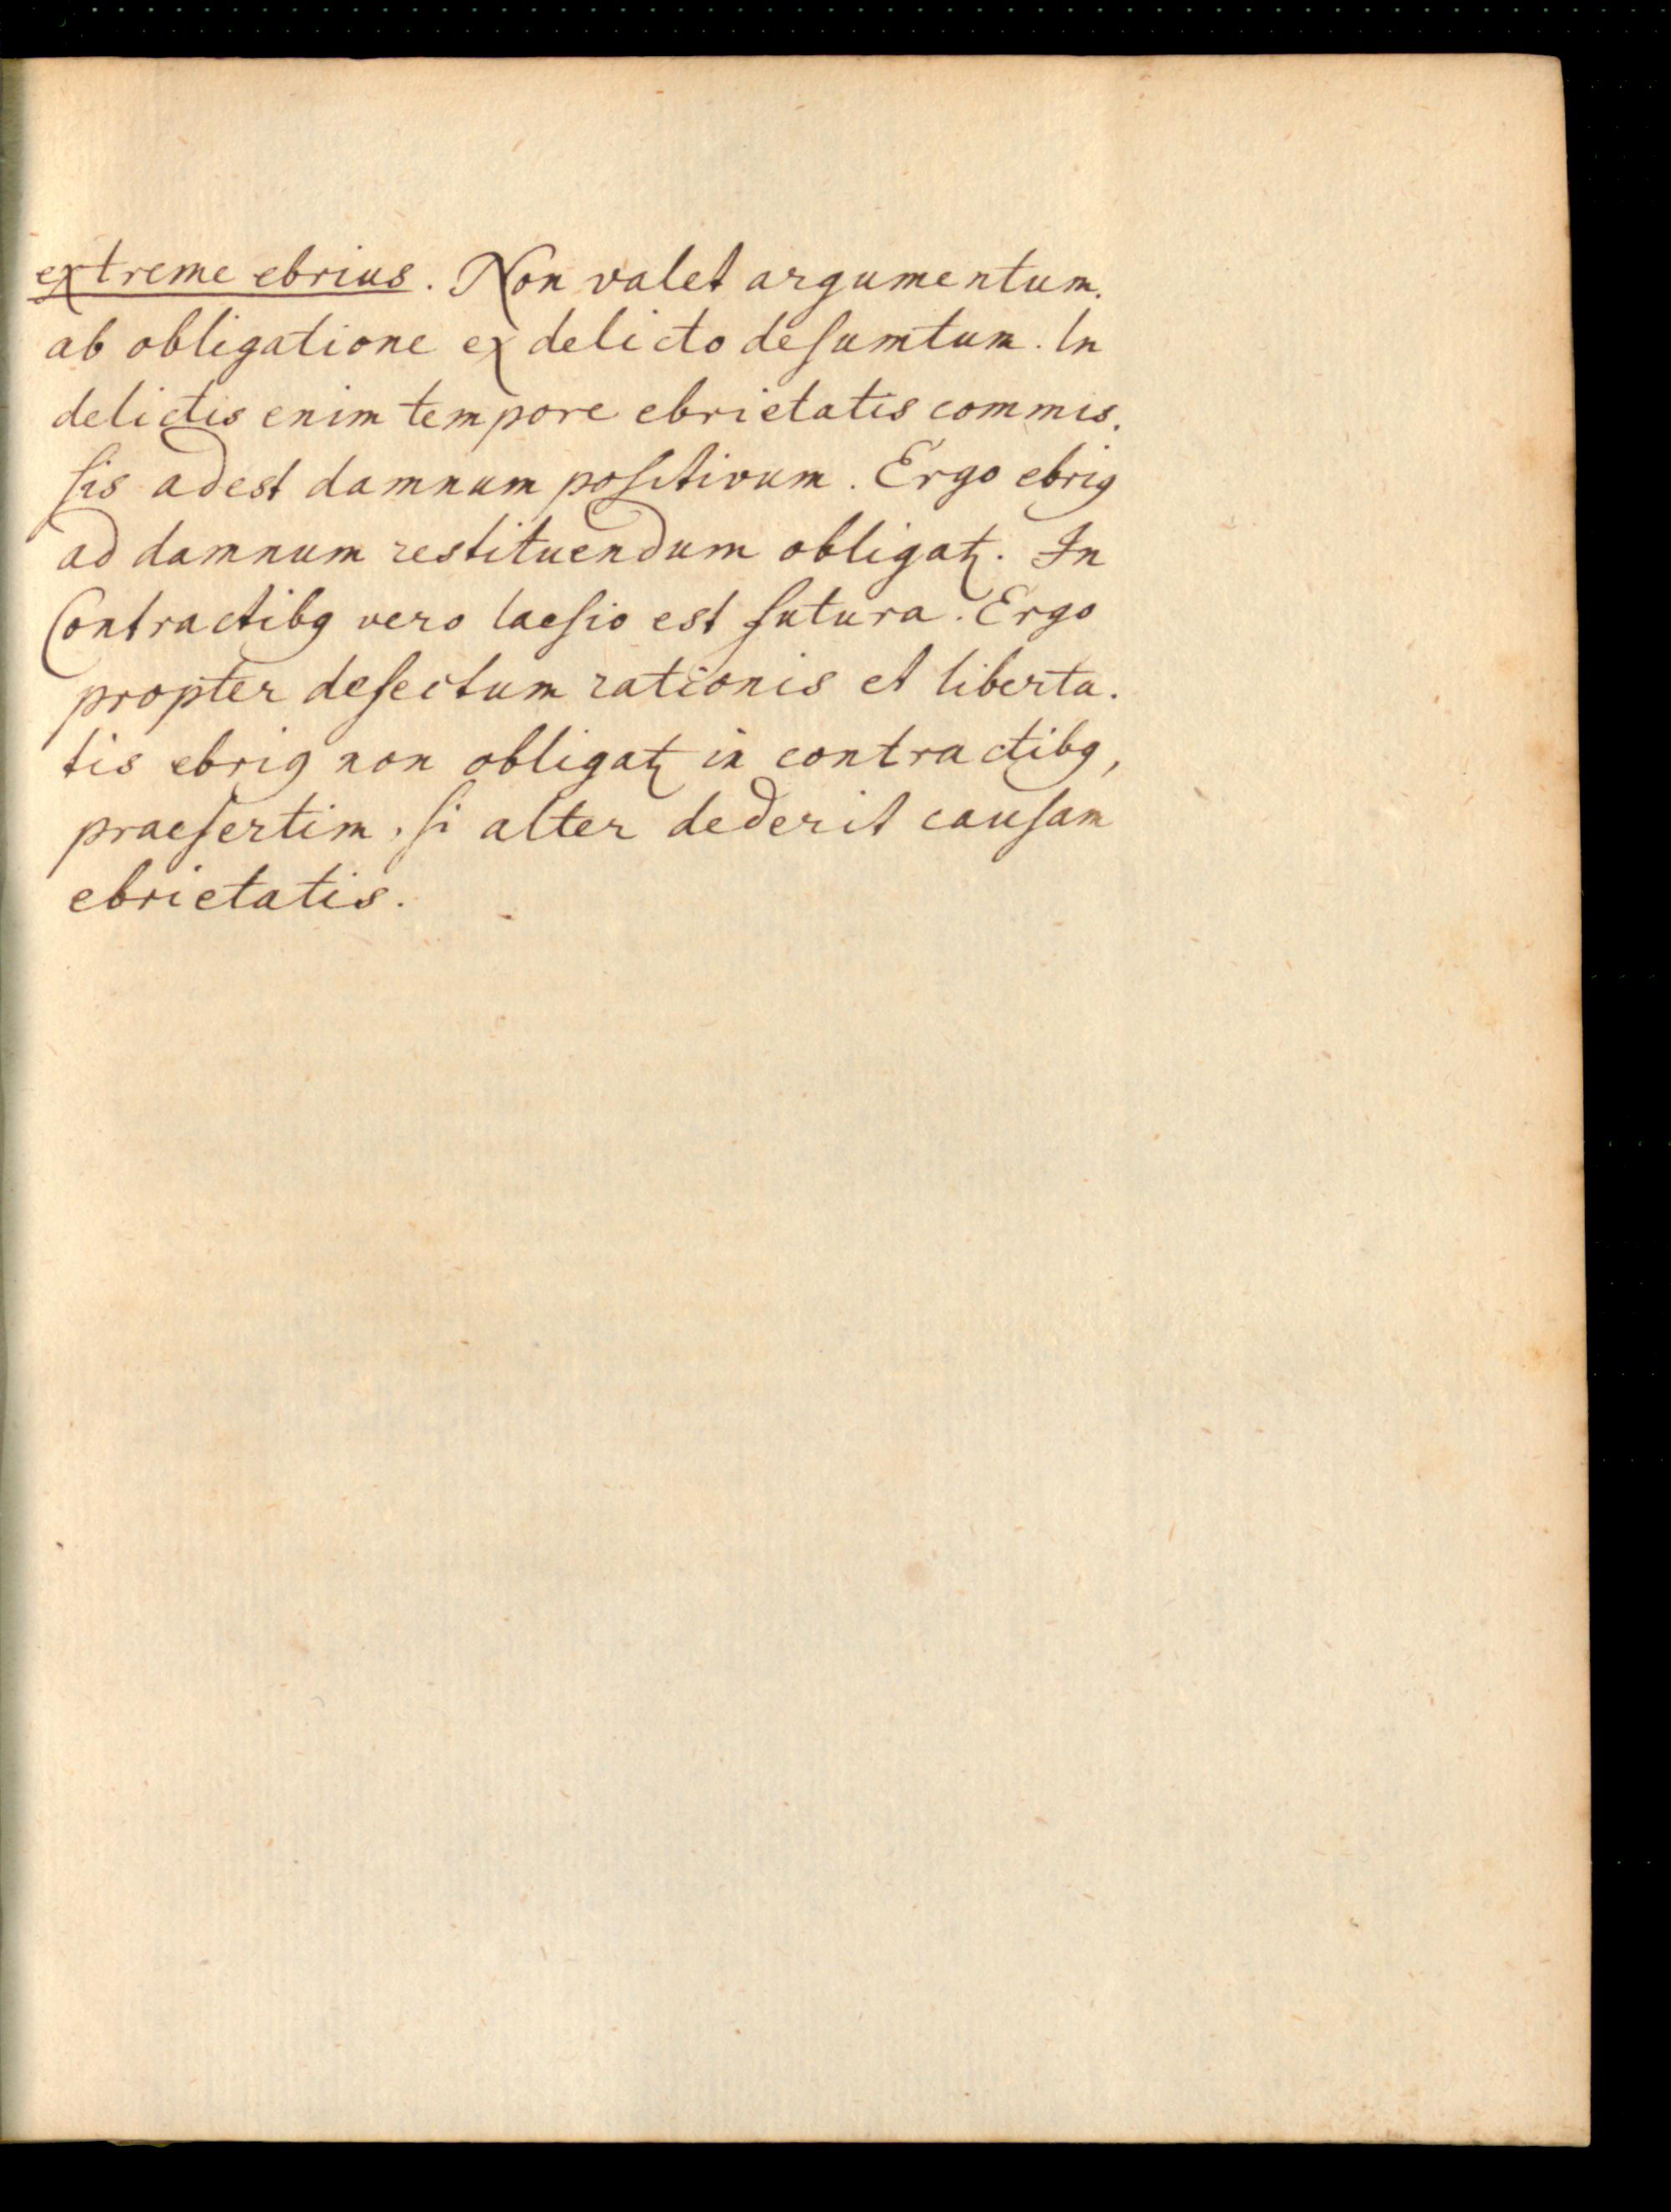 extreme ebrius. Non valet argumentum.
ab obligatione ex delicto deſumtum. In
delictis enim tempore ebrietatis commis.
ſis adest damnum poſitivum. Ergo ebriꝯ
ad damnum restituendum obligatꝭ. In
Contractibꝯ vero laeſio est futura. Ergo
propter defectum rationis et liberta.
tis ebriꝯ non obligatꝭ in contractibꝯ,
praeſertim, ſi alter dederit cauſam
ebrietatis.